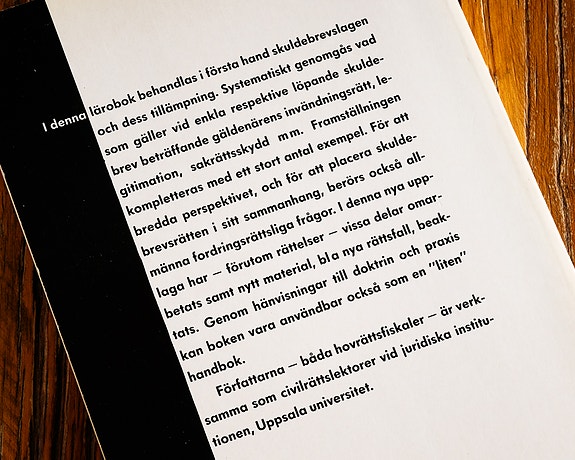 I denna lärobok behandlas i första hand skuldebrevslagen
och dess tillämpning. Systematiskt genomgås vad
som gäller vid enkla respektive löpande skulde-
brev beträffande gäldenärens invändningsrätt, le-
gitimation, sakrättsskydd m m. Framställningen
kompletteras med ett stort antal exempel. För att
bredda perspektivet, och för att placera skulde-
brevsrätten i sitt sammanhang, berörs också all-
männa fordringsrättsliga frågor. I denna nya upp-
laga har – förutom rättelser – vissa delar omar-
betats samt nytt material, bl a nya rättsfall, beak-
tats. Genom hänvisningar till doktrin och praxis
kan boken vara användbar också som en "liten"
handbok.
Författarna – båda hovrättsfiskaler – är verk-
samma som civilrättslektorer vid juridiska institu-
tionen, Uppsala universitet.